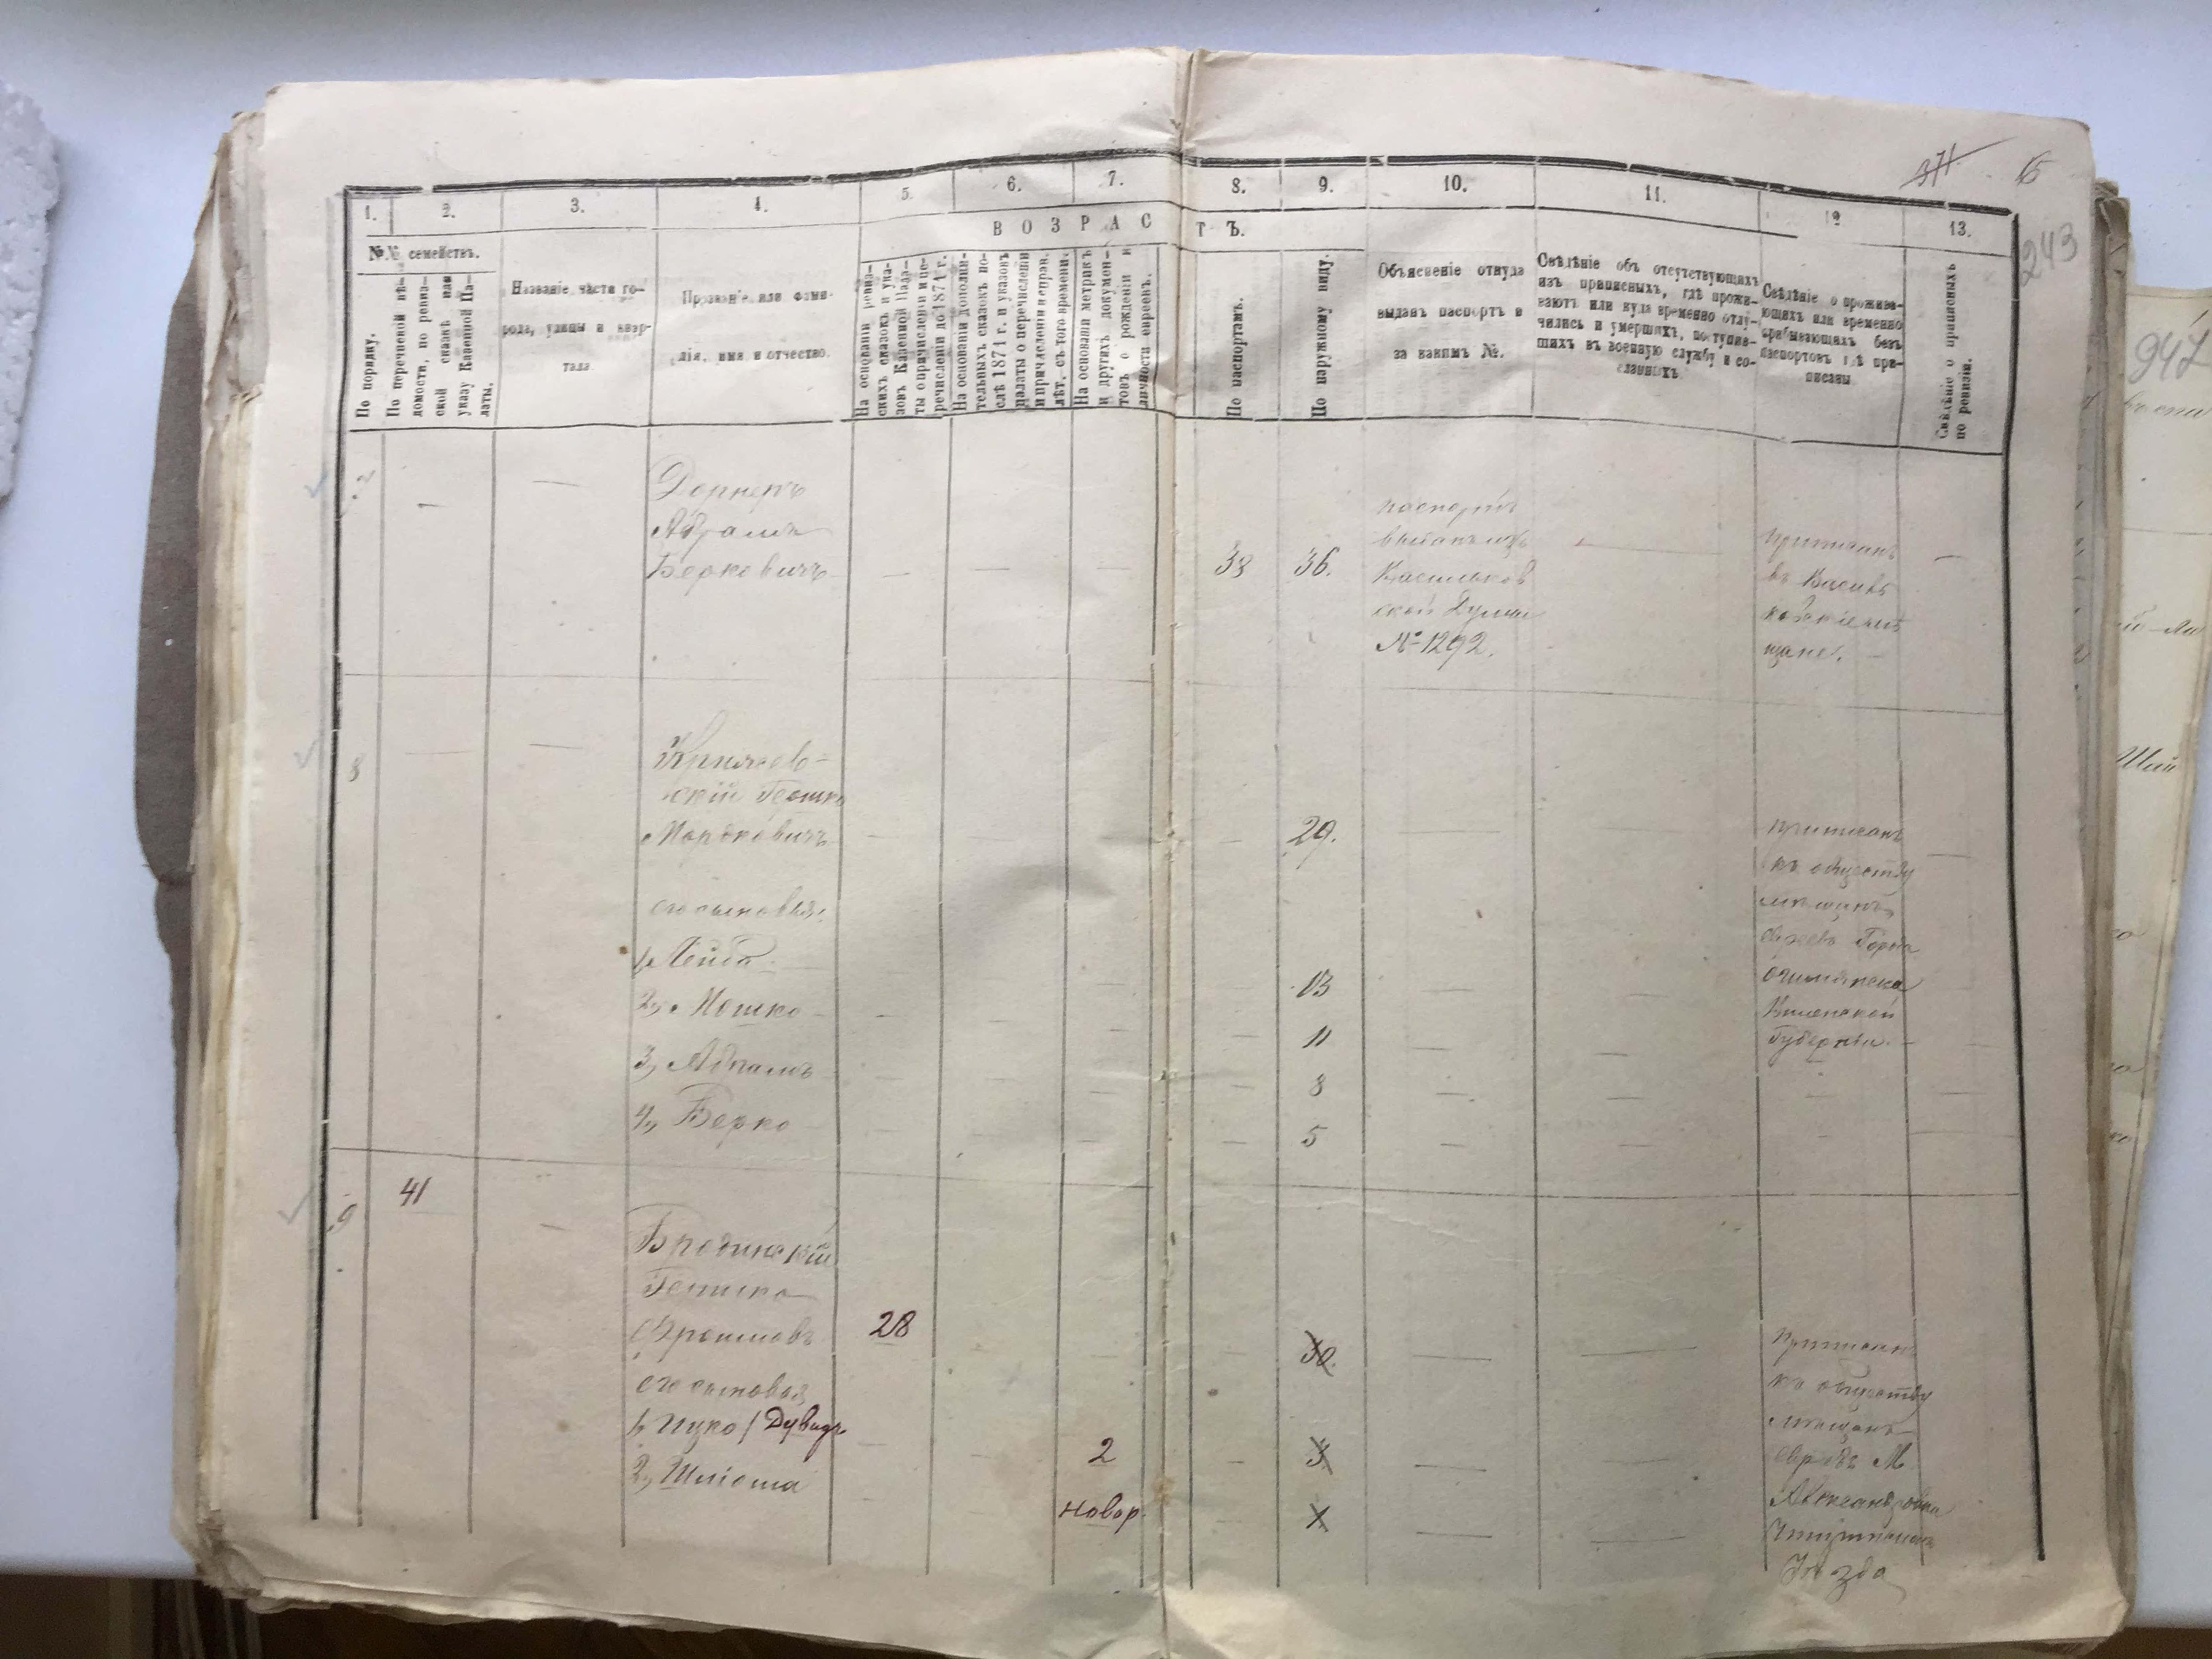 371 6
243
1. 2. 3. 4. 5. 6. 7. 8. 9. 10. 11. 12 13.
В О З Р А С Т Ъ.
№№ семействъ.
По порядку.
По перечневой вѣ-
домости, по ревиз-
ской сказкѣ или
указу Казенной Па-
латы.
Названіе части го-
рода, улицы и квар-
тала.
Прозваніе или фами-
лія, имя и отчество.
На основаніи ревиз-
скихъ сказокъ и ука-
зовъ Казенной Пала-
ты о причисленіи и пе-
речисленіи до 1874 г.
На основаніи дополни-
тельныхъ сказокъ по-
слѣ 1874 г. и указовъ
палаты о перечисленіи
и причисленіи и справ.
лѣт. съ того времени.
На основаніи метрикъ
и другихъ докумен-
товъ о рожденіи и
личности евреевъ.
По паспортамъ.
По наружному виду.
Объясненіе откуда
выданъ паспортъ и
за какимъ №.
Свѣдѣніе объ отсутствующихъ
изъ приписныхъ, гдѣ прожи-
ваютъ или куда временно отлу-
чились и умершихъ, поступив-
шихъ въ военную службу и со-
сланныхъ
Свѣдѣніе о прожива-
ющихъ или временно
прибывающихъ безъ
паспортовъ гдѣ при-
писаны
Свѣдѣніе о приписныхъ
по ревизіи.
Дорнеръ
Абрамъ
Берковичъ
33 36.
паспортъ
выданъ изъ
Васильков
ской Думы
№ 1292.
приписанъ
въ Василь
ковскіе мѣ
щане.
8
скій Гершко
Мордковичъ
29.
его сыновья:
1, Лейба 13
2, Мошко 11
3, Абрамъ 8
4, Берко 5
приписанъ
къ обществу
мѣщанъ
евреевъ Города
Ошмянска
Виленской
Губерніи.
9 41
Бродинскій
Гершко
Фроимовъ 28 30.
его сыновья
1, Ицко / Дувидъ 2 3
2, Шлiома новор.
приписанъ
къ обществу
мѣщанъ
евреевъ М.
Александровка
Уѣзда